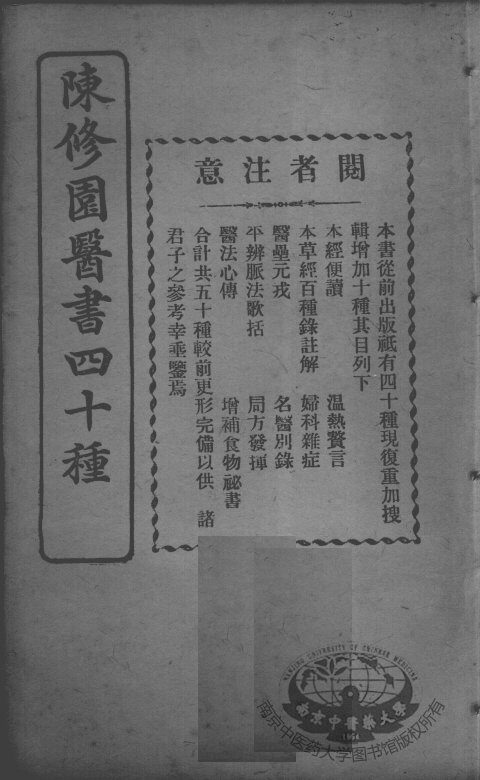 陳修園醫書四十種
閱者注意
本書從前出版祇有四十種現復重加搜
輯增加十種其目列下
本經便讀 溫熱贅言
本草經百種錄註解 婦科雜症
醫壘元戎 名醫別錄
平辨脈法歌括 局方發揮
醫法心傳 增補食物祕書
合計共五十種較前更形完備以供 諸
君子之參考幸垂鑒焉
NANJING UNIVERSITY OF CHINESE MEDICINE
南京中醫藥大學
1954
南京中医药大学图书馆版权所有